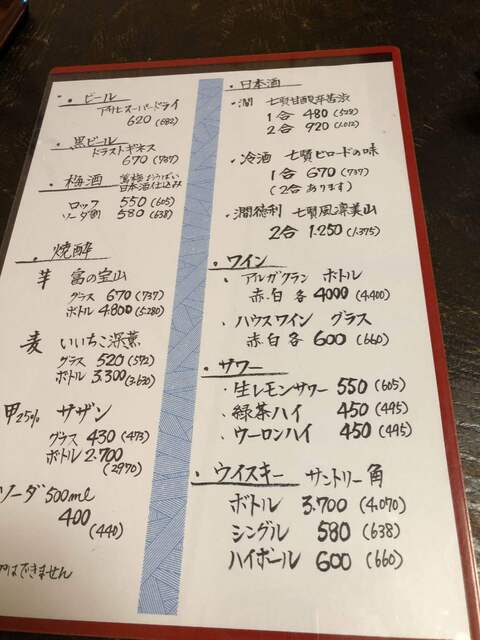 ・ビール
アサヒスーパードライ
620(682)
・黒ビール
ドラストギネス
670(737)
・梅酒 鶯梅 おうばい
日本酒仕込み
ロック 550(605)
ソーダ割 580(638)
・焼酎
芋 富の宝山
グラス 670(737)
ボトル 4.800(5.280)
麦 いいちこ深薫
グラス 520(572)
ボトル 3.300(3.630)
甲25% サザン
グラス 430(473)
ボトル 2.700
(2970)
ソーダ500ml
400
(440)
はできません
・日本酒
・燗 七賢甘酸辛苦渋
1合 480(528)
2合 920(1.012)
・冷酒 七賢ビロードの味
1合 670(737)
(2合あります)
・燗徳利 七賢風凛美山
2合 1.250(1.375)
・ワイン
・アルガクラン ボトル
赤.白 各 4000(4.400)
・ハウスワイン グラス
赤.白 各 600(660)
・サワー
・生レモンサワー 550(605)
・緑茶ハイ 450(495)
・ウーロンハイ 450(495)
・ウイスキー サントリー角
ボトル 3.700(4.070)
シングル 580(638)
ハイボール 600(660)